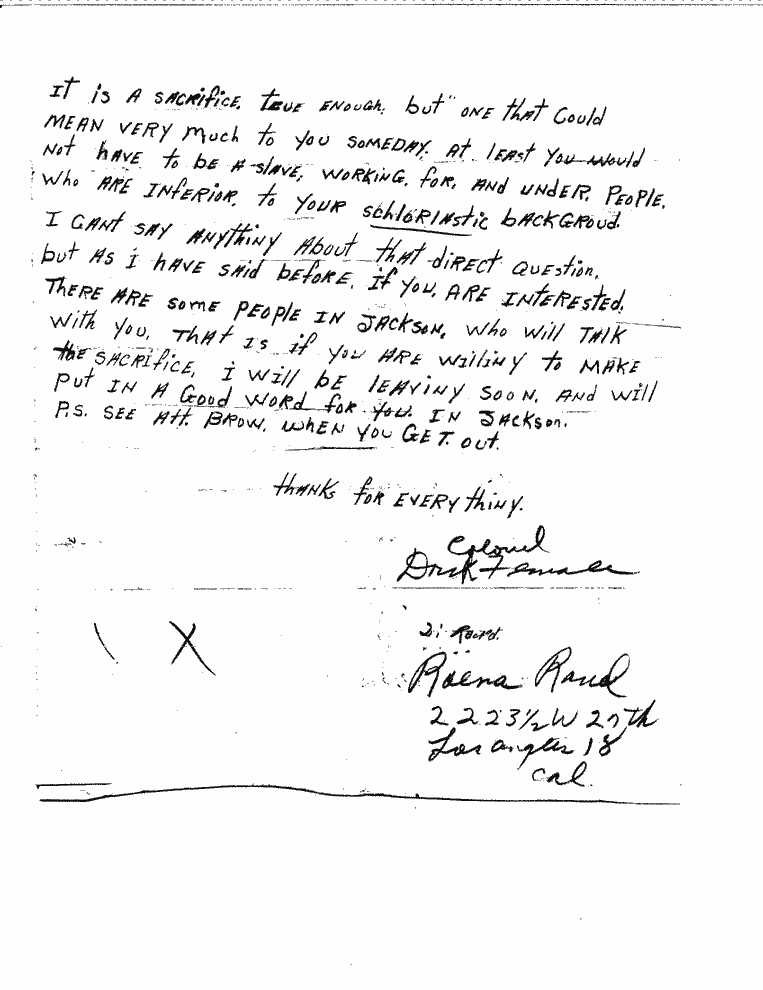 It is A SACRifice. tRUE ENOugh. but" ONE that Could
MEAN VERY Much to You SOMEDAY. At lEASt You Would
Not hAVE to bE A slAVE, WORKiNG. foR. ANd UNdER. PEOPlE.
Who ARE INfERioR. to YOUR SChlORIAStic bACKGROud.
I CANt SAY ANYthiNY About thAt diRECt QUEStion.
but AS i hAVE SAid bEfoRE. If you. ARE INtEREStEd.
ThERE ARE SomE PEOPlE IN JACKSON. Who Will TAlK
With You. ThAt IS if You ARE WilliNY to MAKE
thE SACRIficE. i Will bE lEAViNY SOON. ANd Will
Put IN A Good WORd foR You. IN JACKSon.
P.S. SEE Att. BROW. WhEN YOU GET. Out.
thANKs foR EVERYthiNY.
Colonel
X
Roena Rand
2223½ W 27th
Los angles 18
Cal.